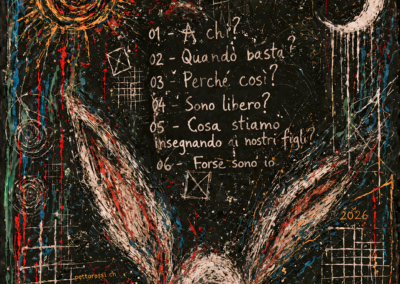 01 - A chi?
02 - Quando basta?
03 - Perché così?
04 - Sono libero?
05 - Cosa stiamo
insegnando ai nostri figli?
06 - Forse sono io
2026